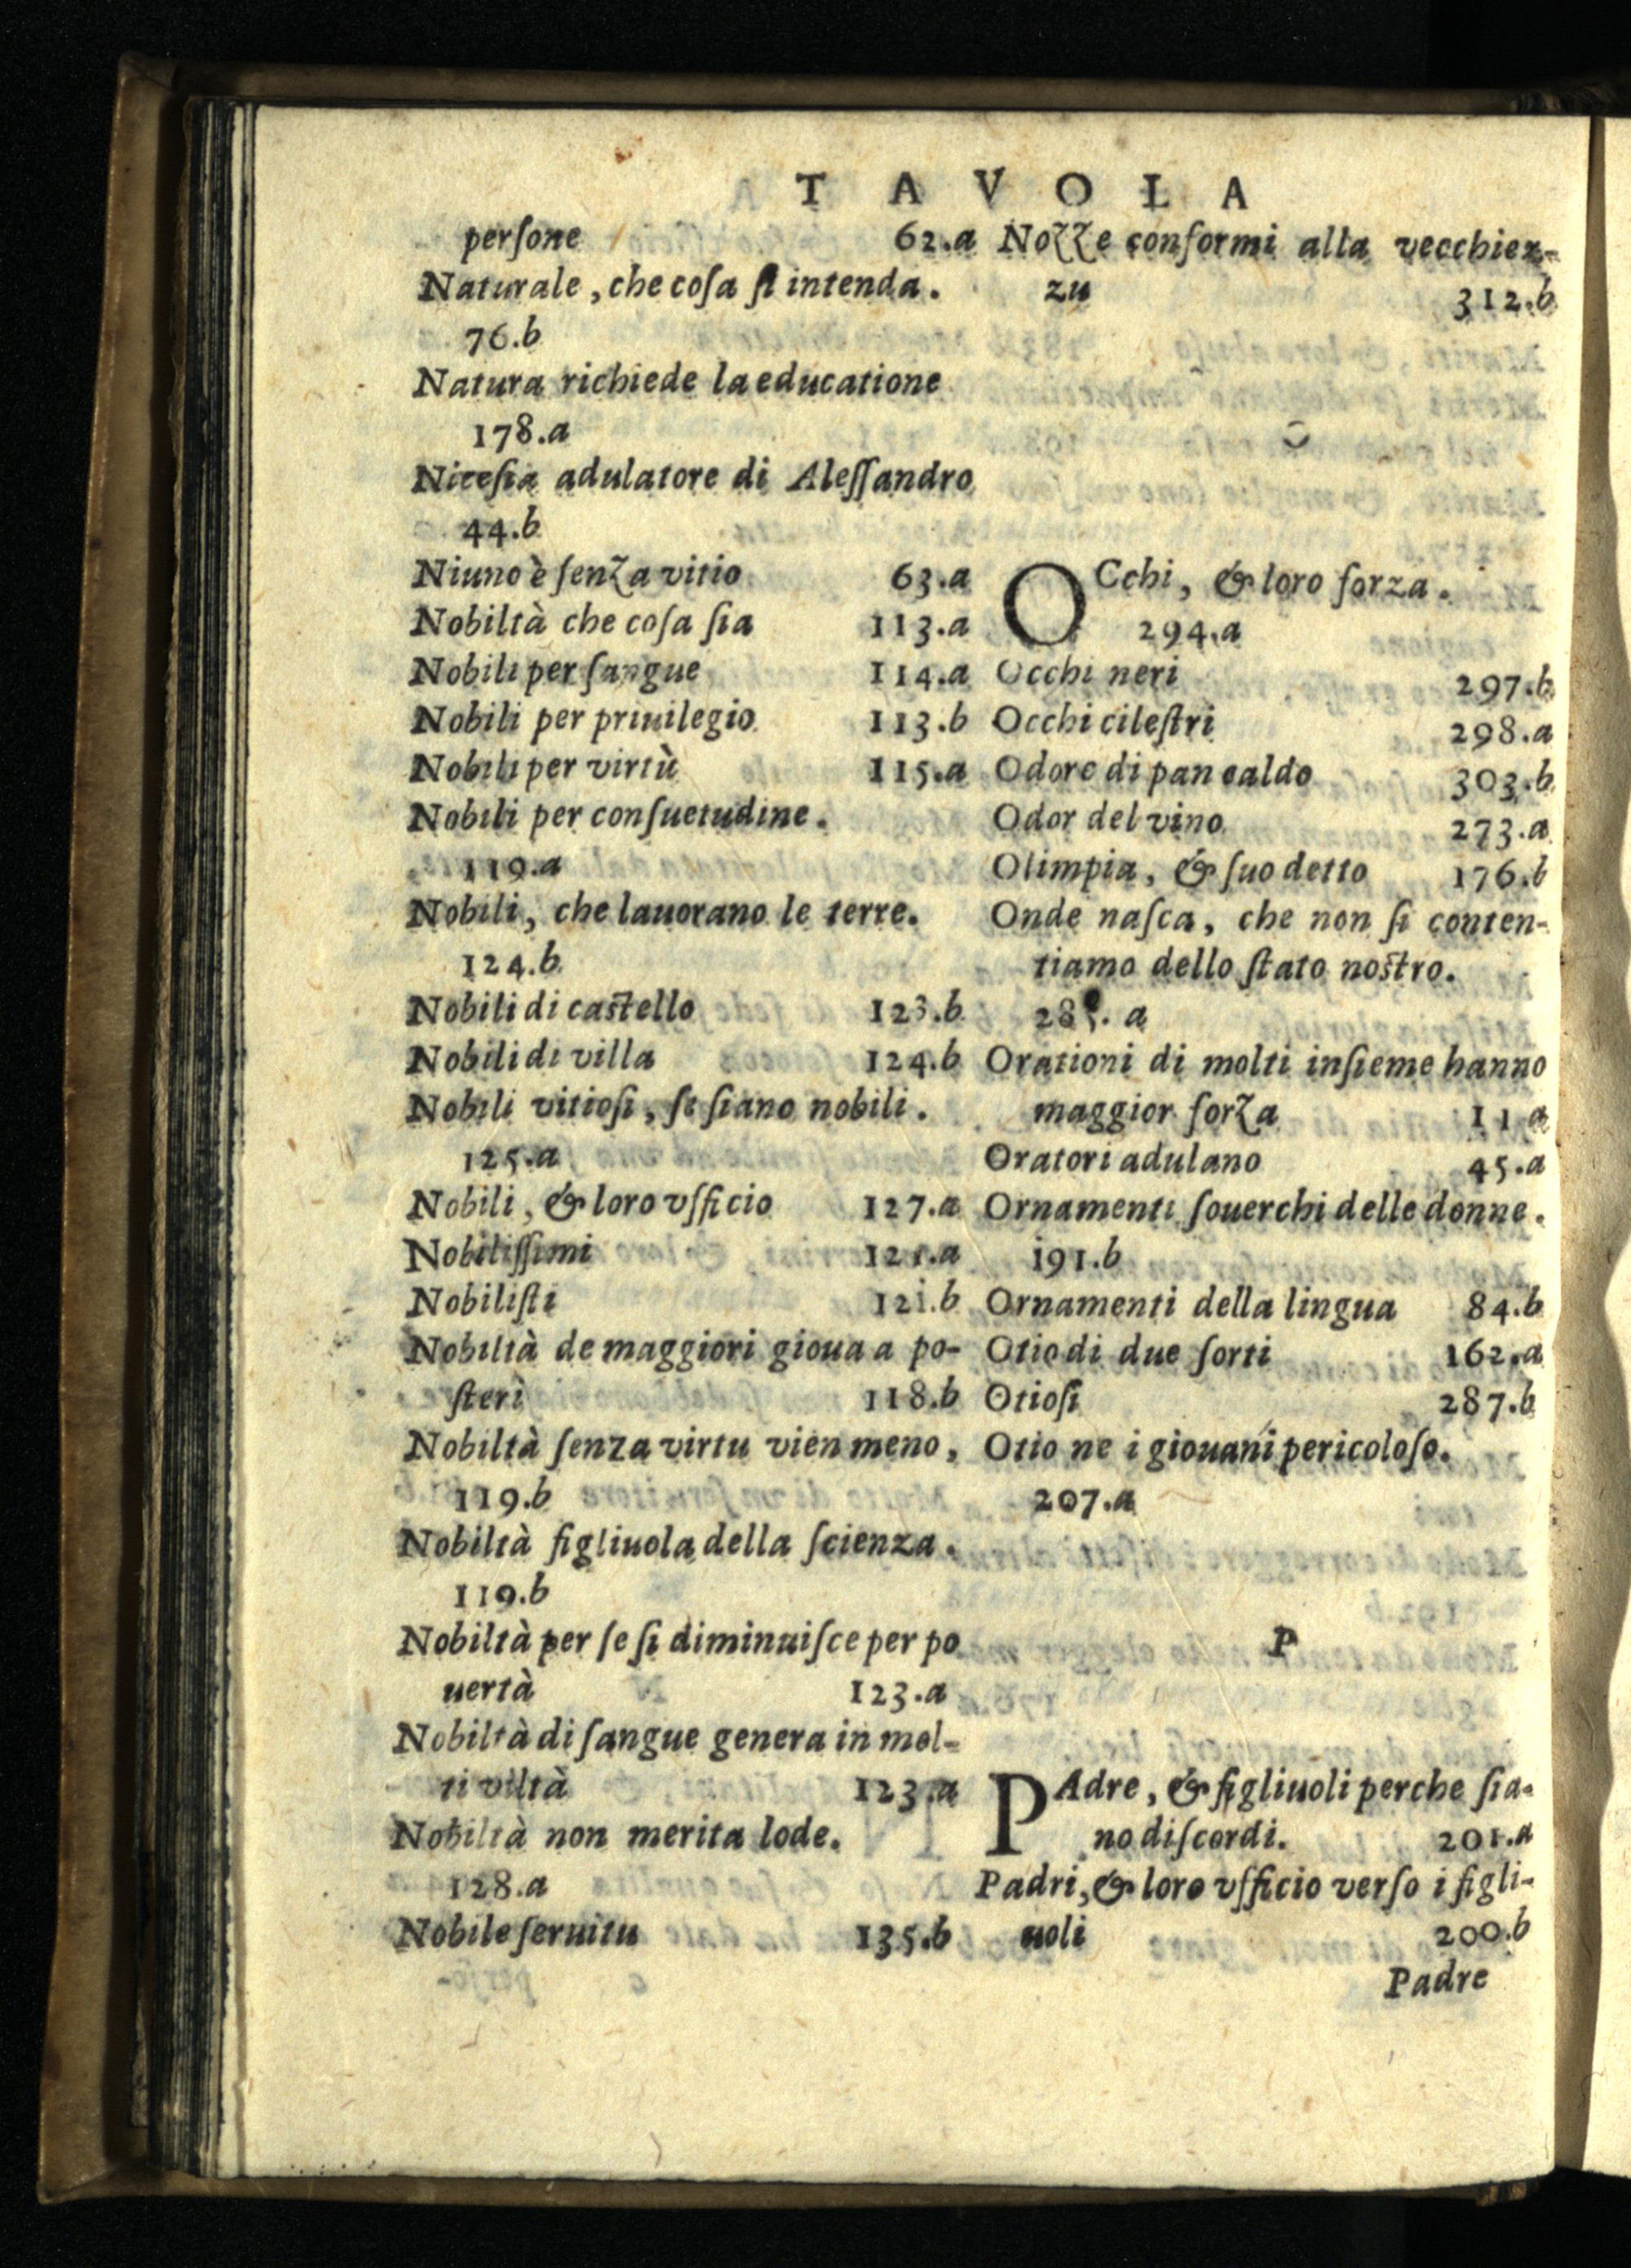 TAVOLA
perſone 62.a
Naturale, che coſa ſi intenda.
76.b
Natura richiede la educatione
178.a
Niceſia adulatore di Aleſſandro
44.b
Niuno è ſenza vitio 63.a
Nobiltà che coſa ſia 113.a
Nobili per ſangue 114.a
Nobili per priuilegio 113.b
Nobili per virtù 115.a
Nobili per conſuetudine.
119.a
Nobili, che lauorano le terre.
124.b
Nobili di caſtello 123.b
Nobili di villa 124.b
Nobili vitioſi, ſe ſiano nobili.
125.a
Nobili, & loro vfficio 127.a
Nobiliſſimi 121.a
Nobiliſti 121.b
Nobiltà de maggiori gioua a po-
ſteri 118.b
Nobiltà ſenza virtu vien meno,
119.b
Nobiltà figliuola della ſcienza.
119.b
Nobiltà per ſe ſi diminuiſce per po
uertà 123.a
Nobiltà di ſangue genera in mol-
ti viltà 123.a
Nobiltà non merita lode.
128.a
Nobile ſeruitu 135.b
Nozze conformi alla vecchiez-
za 312.b
O
OCchi, & loro forza.
294.a
Occhi neri 297.b
Occhi cileſtri 298.a
Odore di pan caldo 303.b
Odor del vino 273.a
Olimpia, & ſuo detto 176.b
Onde naſca, che non ſi conten-
tiamo dello ſtato noſtro.
285. a
Orationi di molti inſieme hanno
maggior forza 11 a
Oratori adulano 45.a
Ornamenti ſouerchi delle donne.
191.b
Ornamenti della lingua 84.b
Otio di due ſorti 162.a
Otioſi 287.b
Otio ne i giouani pericoloſo.
207.a
P
PAdre, & figliuoli perche ſia-
no diſcordi. 201.a
Padri, & loro vfficio verſo i figli-
uoli 200.b
Padre